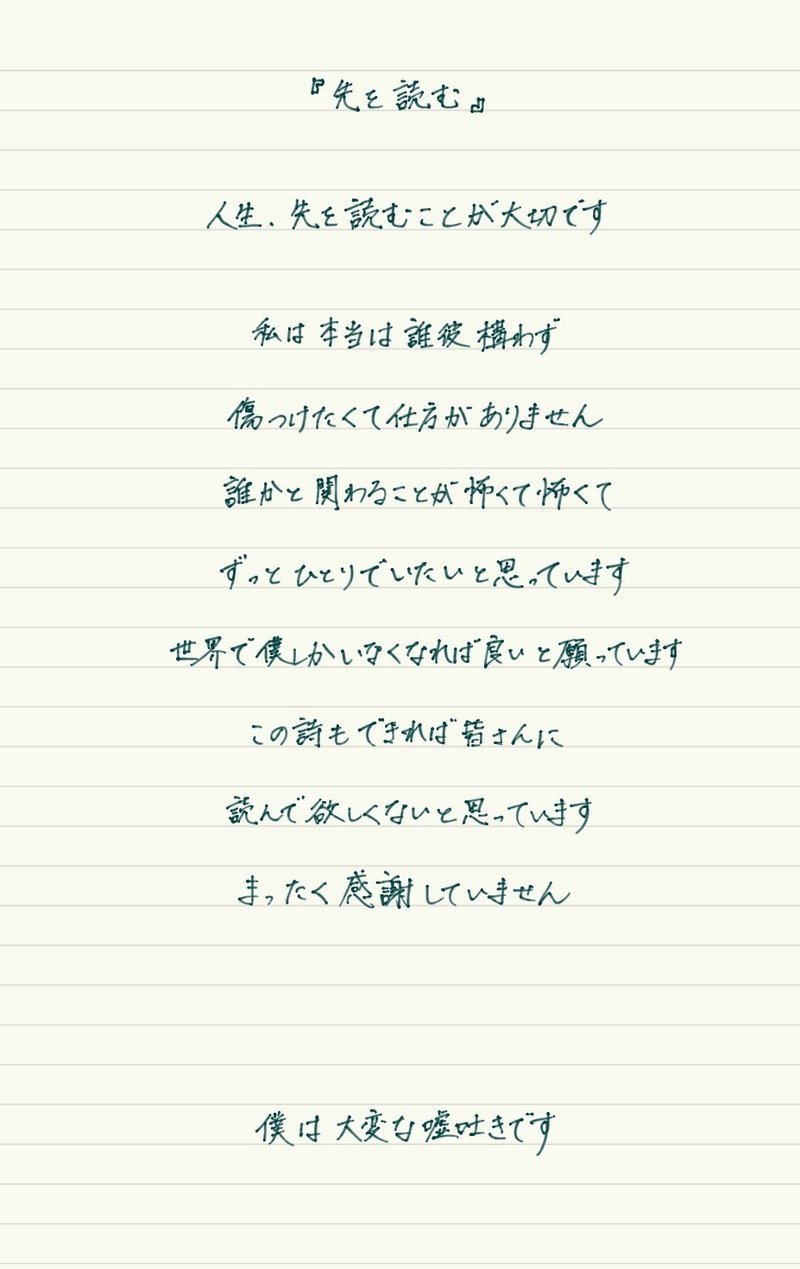 『先を読む』
人生、先を読むことが大切です
私は本当は誰彼構わず
傷つけたくて仕方がありません
誰かと関わることが怖くて怖くて
ずっとひとりでいたいと思っています
世界で僕しかいなくなれば良いと願っています
この詩もできれば皆さんに
読んで欲しくないと思っています
まったく感謝していません
僕は大変な嘘吐きです